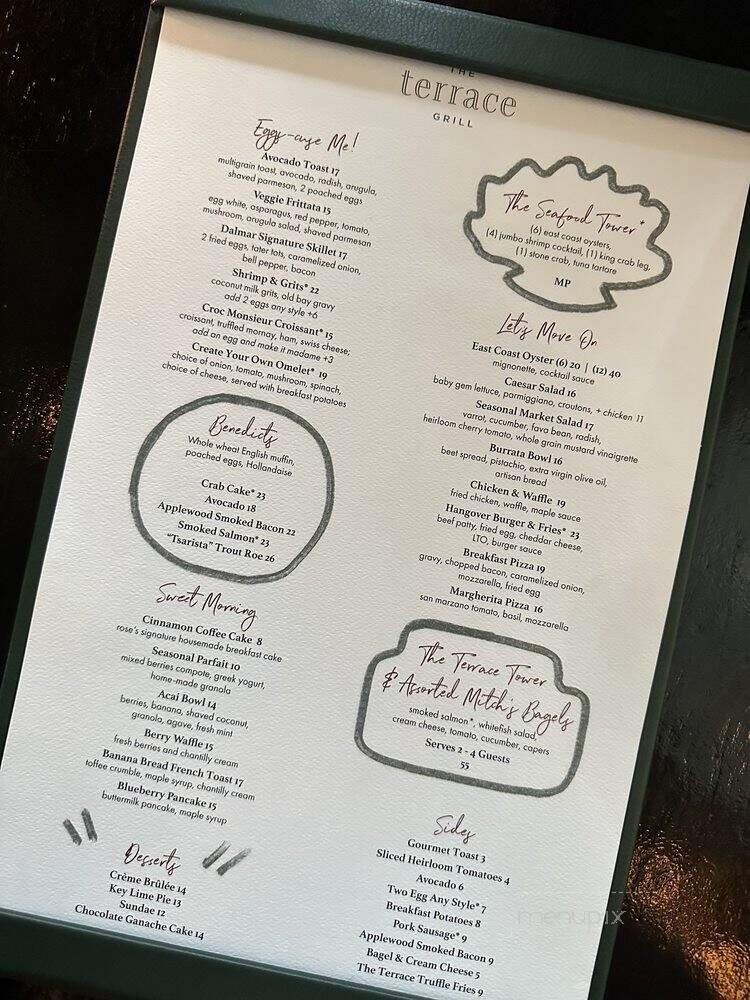 THE
terrace
GRILL
Eggs-cuse Me!
Avocado Toast 17
multigrain toast, avocado, radish, arugula,
shaved parmesan, 2 poached eggs
Veggie Frittata 15
egg white, asparagus, red pepper, tomato,
mushroom, arugula salad, shaved parmesan
Dalmar Signature Skillet 17
2 fried eggs, tater tots, caramelized onion,
bell pepper, bacon
Shrimp & Grits* 22
coconut milk grits, old bay gravy
add 2 eggs any style +6
Croc Monsieur Croissant* 15
croissant, truffled mornay, ham, swiss cheese;
add an egg and make it madame +3
Create Your Own Omelet* 19
choice of onion, tomato, mushroom, spinach,
choice of cheese, served with breakfast potatoes
Benedicts
Whole wheat English muffin,
poached eggs, Hollandaise
Crab Cake* 23
Avocado 18
Applewood Smoked Bacon 22
Smoked Salmon* 23
"Tsarista" Trout Roe 26
Sweet Morning
Cinnamon Coffee Cake 8
rose's signature housemade breakfast cake
Seasonal Parfait 10
mixed berries compote, greek yogurt,
home-made granola
Acai Bowl 14
berries, banana, shaved coconut,
granola, agave, fresh mint
Berry Waffle 15
fresh berries and chantilly cream
Banana Bread French Toast 17
toffee crumble, maple syrup, chantilly cream
Blueberry Pancake 15
buttermilk pancake, maple syrup
Desserts
Crème Brûlée 14
Key Lime Pie 13
Sundae 12
Chocolate Ganache Cake 14
The Seafood Tower*
(6) east coast oysters,
(4) jumbo shrimp cocktail, (1) king crab leg,
(1) stone crab, tuna tartare
MP
Let's Move On
East Coast Oyster (6) 20 | (12) 40
mignonette, cocktail sauce
Caesar Salad 16
baby gem lettuce, parmiggiano, croutons, + chicken 11
Seasonal Market Salad 17
varrot, cucumber, fava bean, radish,
heirloom cherry tomato, whole grain mustard vinaigrette
Burrata Bowl 16
beet spread, pistachio, extra virgin olive oil,
artisan bread
Chicken & Waffle 19
fried chicken, waffle, maple sauce
Hangover Burger & Fries* 23
beef patty, fried egg, cheddar cheese,
LTO, burger sauce
Breakfast Pizza 19
gravy, chopped bacon, caramelized onion,
mozzarella, fried egg
Margherita Pizza 16
san marzano tomato, basil, mozzarella
The Terrace Tower
& Assorted Mitch's Bagels
smoked salmon*, whitefish salad,
cream cheese, tomato, cucumber, capers
Serves 2 - 4 Guests
55
Sides
Gourmet Toast 3
Sliced Heirloom Tomatoes 4
Avocado 6
Two Egg Any Style* 7
Breakfast Potatoes 8
Pork Sausage* 9
Applewood Smoked Bacon 9
Bagel & Cream Cheese 5
The Terrace Truffle Fries 9